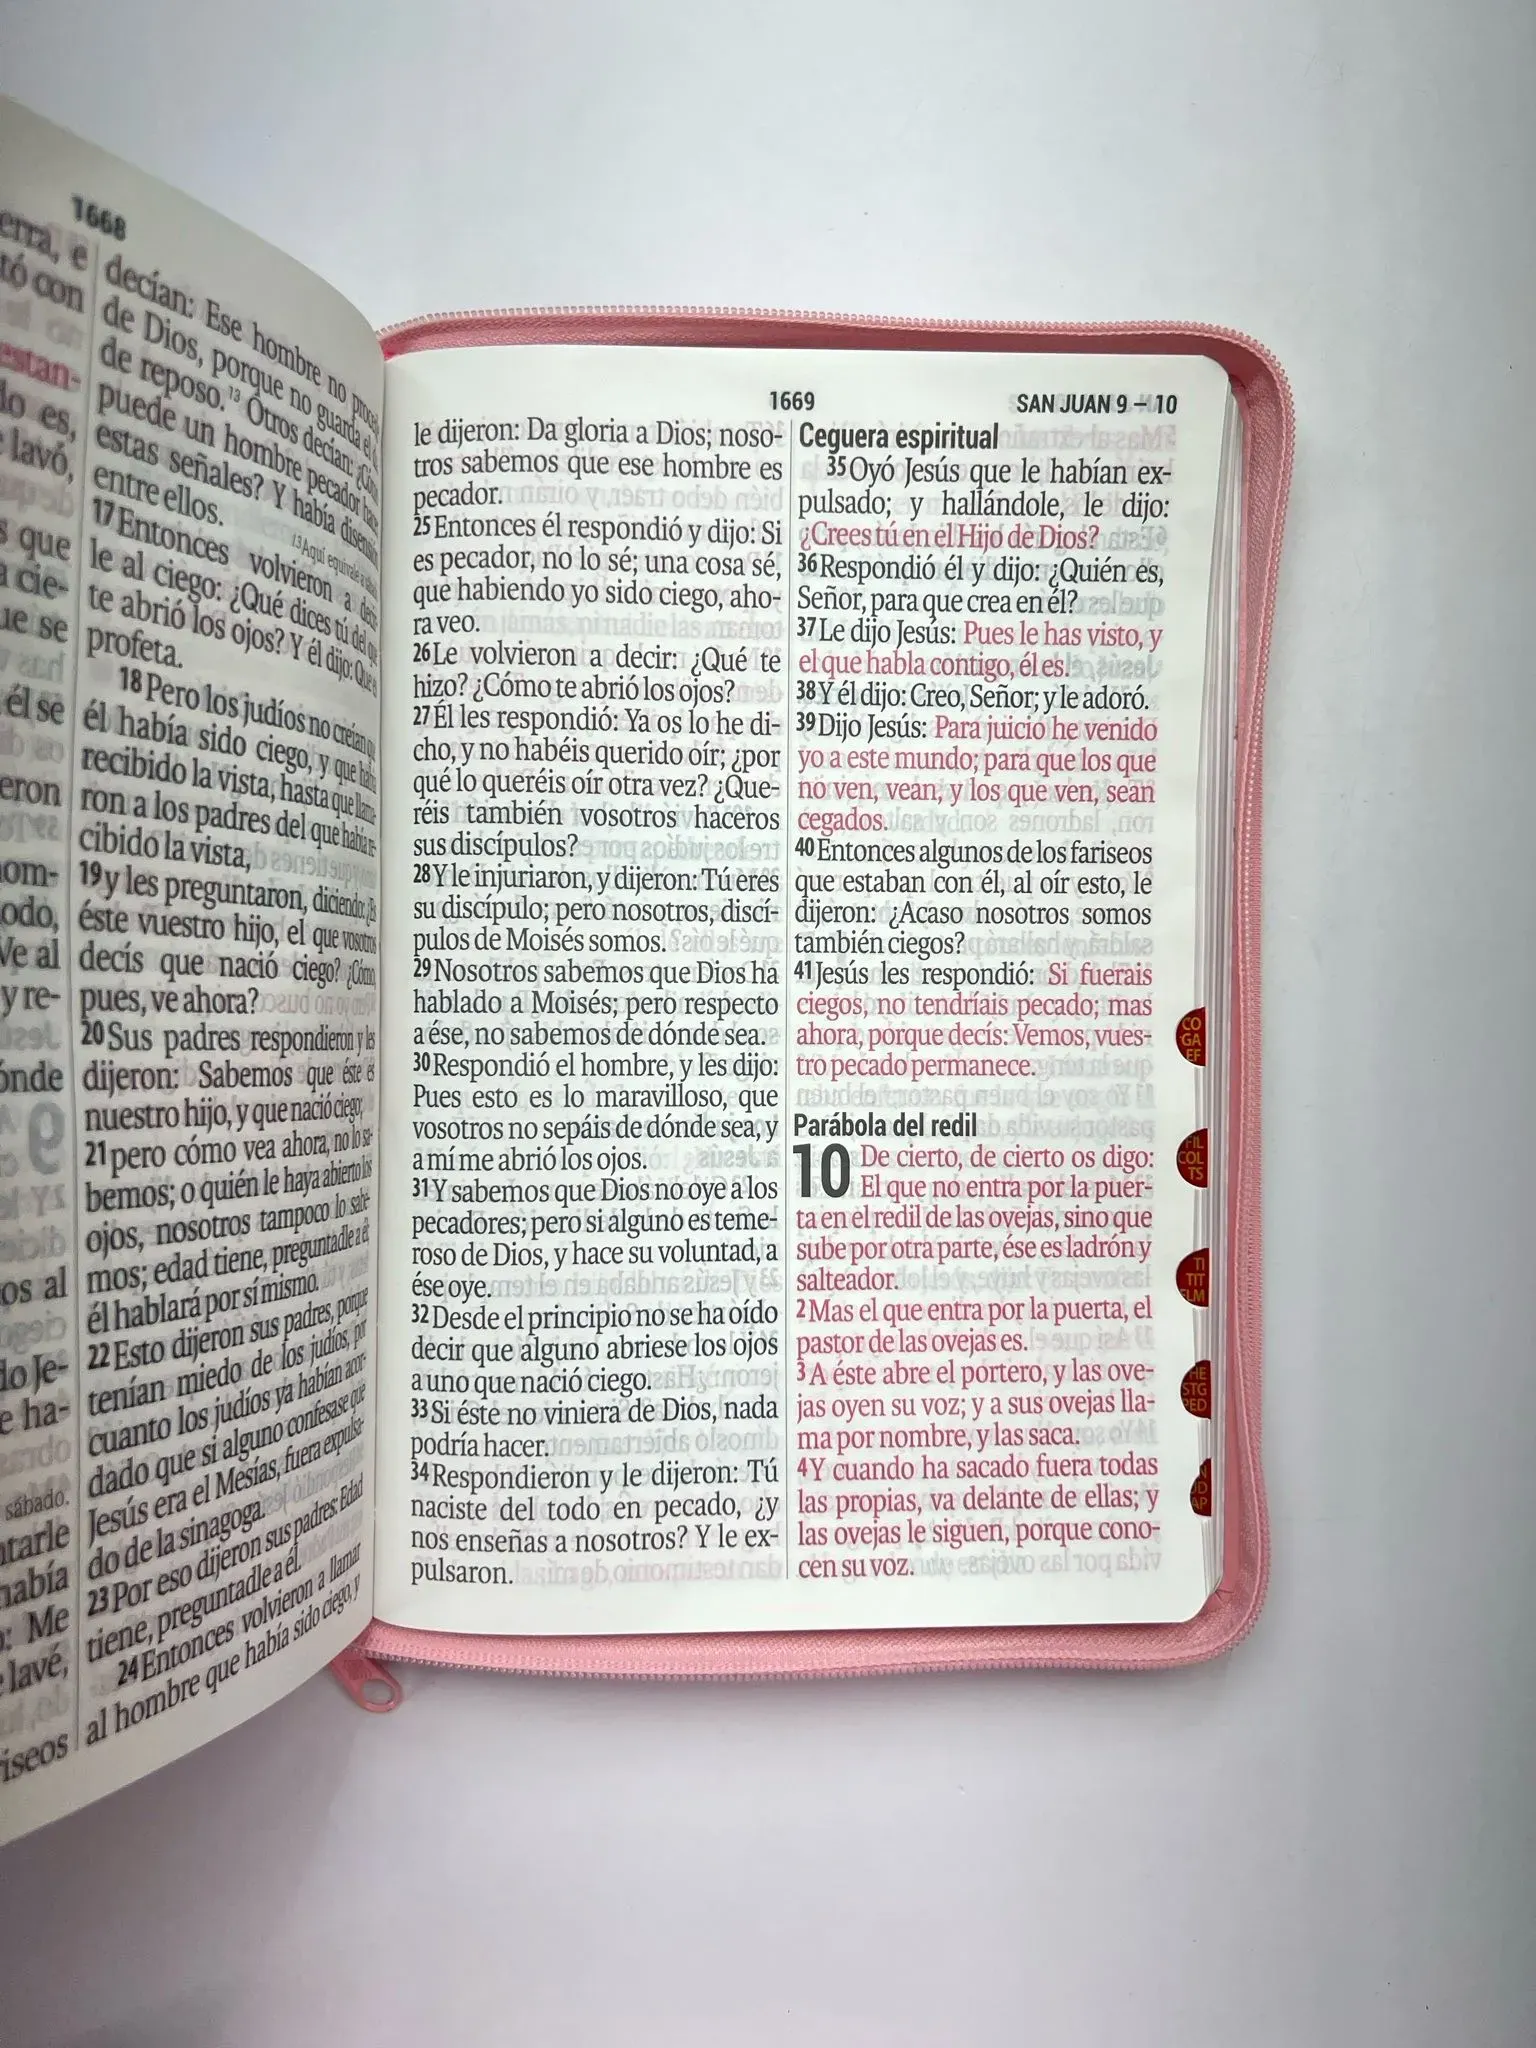 1668
erra, e
tó con
estan-
do es,
lavó,
s que
a cie-
ue se
él se
eron
nom-
odo,
Ve al
y re-
ónde
os al
do Je-
e ha-
sábado.
ntarle
había
o: Me
lavé,
riseos
decían: Ese hombre no
de Dios, porque no guarda el
de reposo. 13 Otros decían: ¿Cómo
puede un hombre pecador hacer
estas señales? Y había disensión
entre ellos.
13 Aquí equivale a
17 Entonces volvieron a
le al ciego: ¿Qué dices tú del que
te abrió los ojos? Y él dijo: Que es
profeta.
18 Pero los judíos no creían que
él había sido ciego, y que había
recibido la vista, hasta que llama-
ron a los padres del que había re-
cibido la vista,
19 y les preguntaron, diciendo: ¿Es
éste vuestro hijo, el que vosotros
decís que nació ciego? ¿Cómo,
pues, ve ahora?
20 Sus padres respondieron y les
dijeron: Sabemos que éste es
nuestro hijo, y que nació ciego;
21 pero cómo vea ahora, no lo sa-
bemos; o quién le haya abierto los
ojos, nosotros tampoco lo sabe-
mos; edad tiene, preguntadle a él;
él hablará por sí mismo.
22 Esto dijeron sus padres, porque
tenían miedo de los judíos, por
cuanto los judíos ya habían acor-
dado que si alguno confesase que
Jesús era el Mesías, fuera expulsa-
do de la sinagoga.
23 Por eso dijeron sus padres: Edad
tiene, preguntadle a él.
24 Entonces volvieron a llamar
al hombre que había sido ciego, y
1669
SAN JUAN 9 – 10
le dijeron: Da gloria a Dios; noso-
tros sabemos que ese hombre es
pecador.
25 Entonces él respondió y dijo: Si
es pecador, no lo sé; una cosa sé,
que habiendo yo sido ciego, aho-
ra veo.
26 Le volvieron a decir: ¿Qué te
hizo? ¿Cómo te abrió los ojos?
27 Él les respondió: Ya os lo he di-
cho, y no habéis querido oír; ¿por
qué lo queréis oír otra vez? ¿Que-
réis también vosotros haceros
sus discípulos?
28 Y le injuriaron, y dijeron: Tú eres
su discípulo; pero nosotros, discí-
pulos de Moisés somos.
29 Nosotros sabemos que Dios ha
hablado a Moisés; pero respecto
a ése, no sabemos de dónde sea.
30 Respondió el hombre, y les dijo:
Pues esto es lo maravilloso, que
vosotros no sepáis de dónde sea, y
a mí me abrió los ojos.
31 Y sabemos que Dios no oye a los
pecadores; pero si alguno es teme-
roso de Dios, y hace su voluntad, a
ése oye.
32 Desde el principio no se ha oído
decir que alguno abriese los ojos
a uno que nació ciego.
33 Si éste no viniera de Dios, nada
podría hacer.
34 Respondieron y le dijeron: Tú
naciste del todo en pecado, ¿y
nos enseñas a nosotros? Y le ex-
pulsaron.
Ceguera espiritual
35 Oyó Jesús que le habían ex-
pulsado; y hallándole, le dijo:
¿Crees tú en el Hijo de Dios?
36 Respondió él y dijo: ¿Quién es,
Señor, para que crea en él?
37 Le dijo Jesús: Pues le has visto, y
el que habla contigo, él es.
38 Y él dijo: Creo, Señor; y le adoró.
39 Dijo Jesús: Para juicio he venido
yo a este mundo; para que los que
no ven, vean, y los que ven, sean
cegados.
40 Entonces algunos de los fariseos
que estaban con él, al oír esto, le
dijeron: ¿Acaso nosotros somos
también ciegos?
41 Jesús les respondió: Si fuerais
ciegos, no tendríais pecado; mas
ahora, porque decís: Vemos, vues-
tro pecado permanece.
Parábola del redil
10 De cierto, de cierto os digo:
El que no entra por la puer-
ta en el redil de las ovejas, sino que
sube por otra parte, ése es ladrón y
salteador.
2 Mas el que entra por la puerta, el
pastor de las ovejas es.
3 A éste abre el portero, y las ove-
jas oyen su voz; y a sus ovejas lla-
ma por nombre, y las saca.
4 Y cuando ha sacado fuera todas
las propias, va delante de ellas; y
las ovejas le siguen, porque cono-
cen su voz.
CO
GA
EF
FIL
COL
TS
TI
TIT
FLM
HE
STG
PED